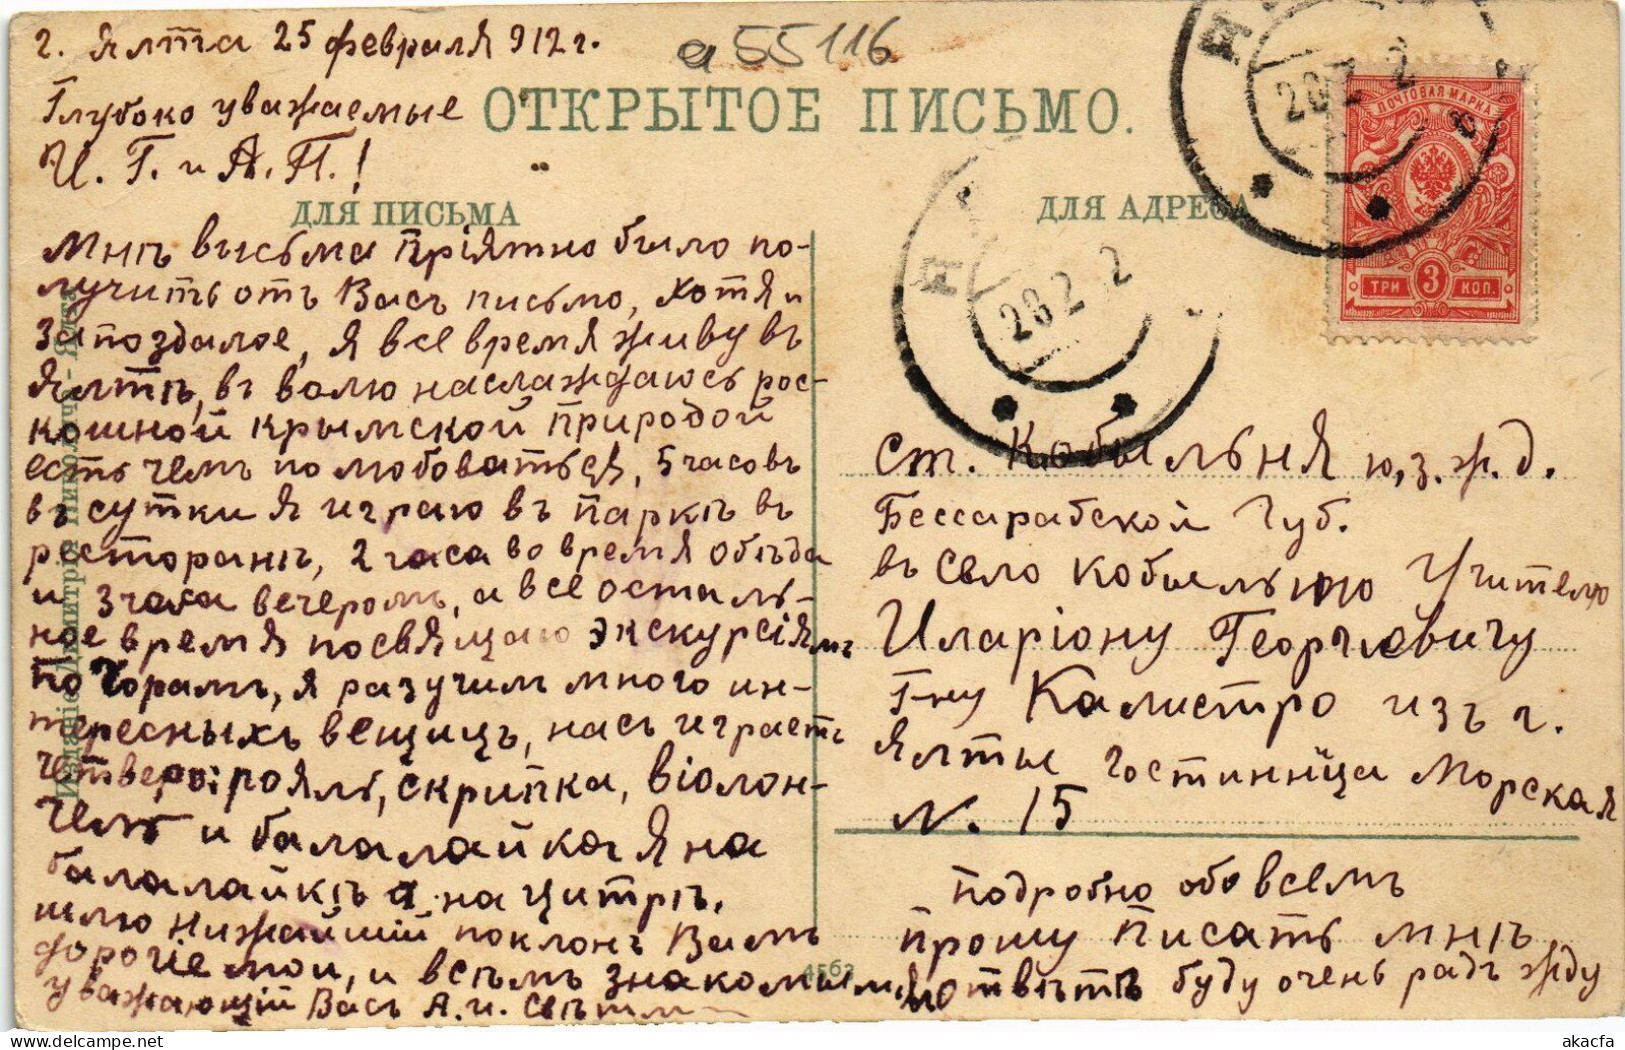 г. Ялта 25 февраля 912 г.
а 55116
Глубоко уважаемые
И. Г. и А. П.!
ОТКРЫТОЕ ПИСЬМО.
ДЛЯ ПИСЬМА
Мнѣ вѣсьма пріятно было по-
лучить отъ Васъ письмо, хотя и
запоздалое, я все время живу въ
Ялтѣ, въ волю наслаждаюсь рос-
кошной крымской природой
есть чемъ полюбоваться, 5 часовъ
въ сутки я играю въ паркѣ въ
ресторанѣ, 2 часа во время обѣда
и 3 часа вечеромъ, а все осталь-
ное время посвящаю экскурсіямъ
по горамъ, я разучил много ин-
тересныхъ вещицъ, насъ играетъ
четверо: рояль, скрипка, віолон-
чель и балалайка я на
балалайкѣ и на цитрѣ.
шлю нижайшій поклонъ Вамъ
дорогіе мои, и всѣмъ знакомымъ
уважающій Васъ А. и. Свѣтл
4563
ДЛЯ АДРЕСА
ПОЧТОВАЯ МАРКА
ТРИ 3 КОП.
20 2 2
20 2 2
ст. Кобыльня ю. з. ж. д.
Бессарабской Губ.
въ село Кобыльню Учителю
Иларіону Георгіевичу
Г-ну Калистро изъ г.
Ялты гостинница Морская
N. 15
подробно обо всемъ
прошу писать мнѣ,
отвѣтъ буду очень радъ жду
akacfa